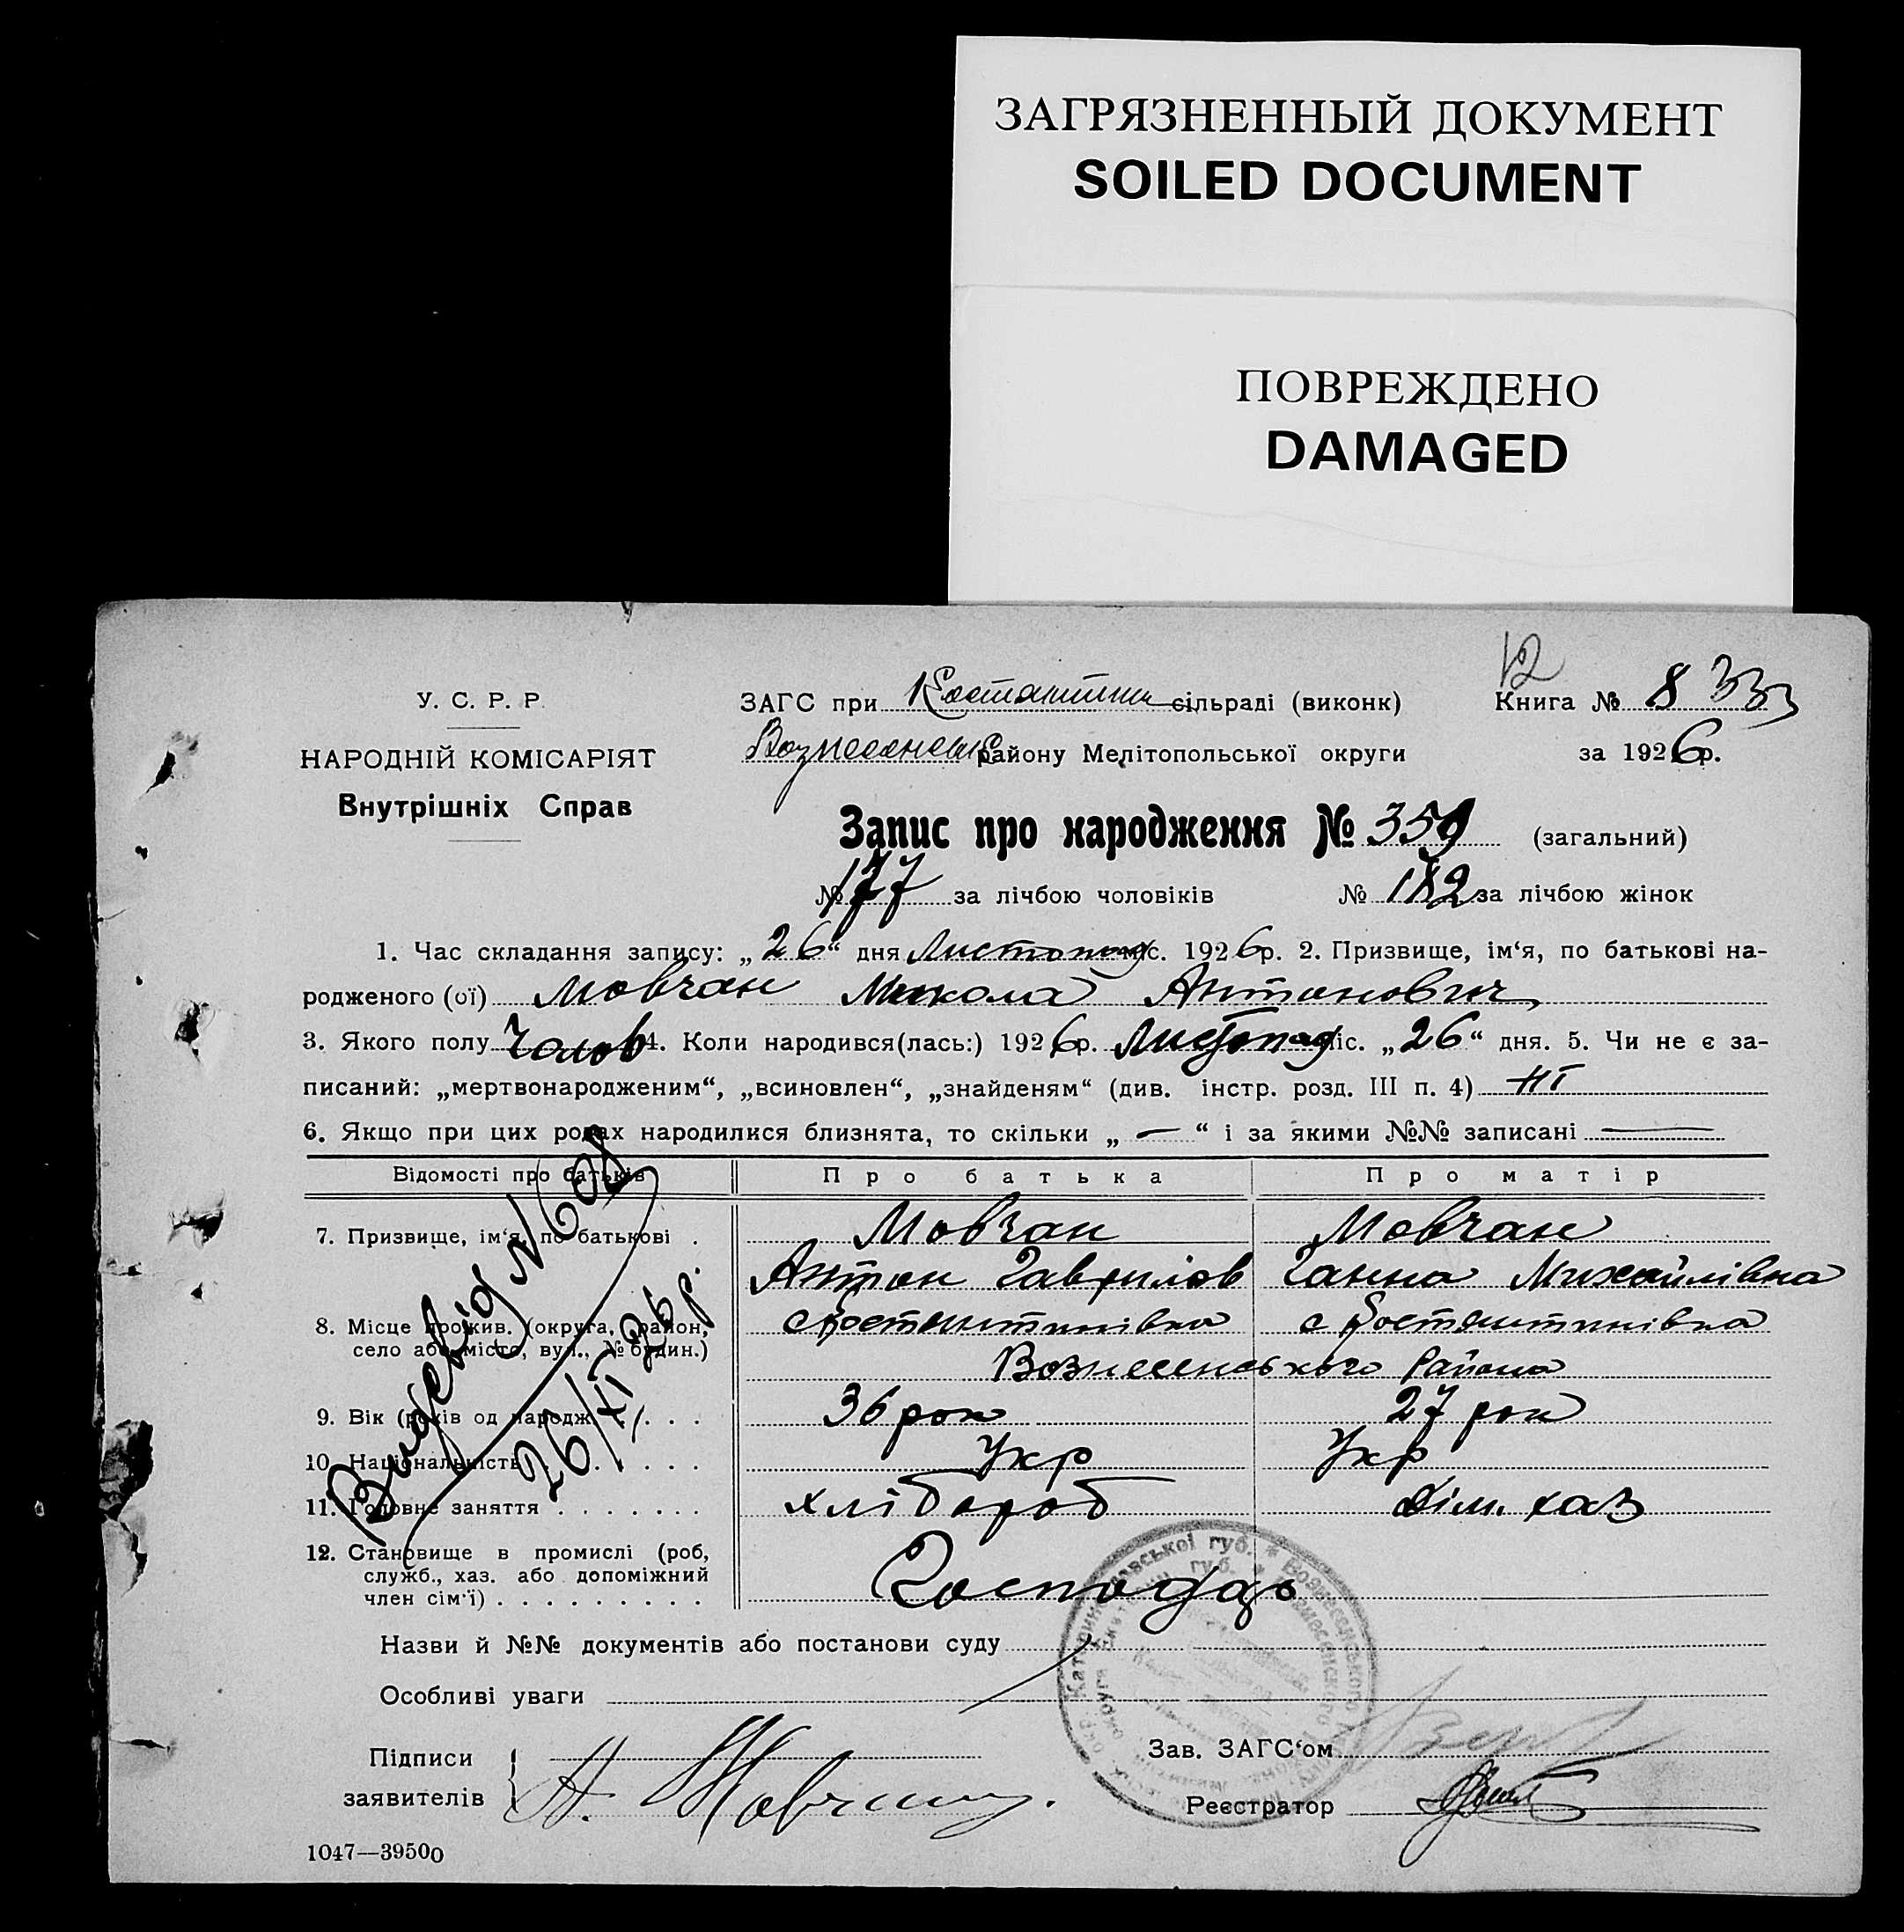 ЗАГРЯЗНЕННЫЙ ДОКУМЕНТ
SOILED DOCUMENT
ПОВРЕЖДЕНО
DAMAGED
12
У. С. Р. Р.
ЗАГС при Костантин сільраді (виконк)
Книга № 8 333
НАРОДНІЙ КОМІСАРІЯТ
Вознесенськ району Мелітопольської округи
за 1926 р.
Внутрішніх Справ
Запис про народження № 359 (загальний)
№ 177 за лічбою чоловіків № 182 за лічбою жінок
1. Час складання запису: „26“ дня Листопад міс. 1926 р. 2. Призвище, ім‘я, по батькові на-
родженого (ої) Мовчан Микола Антонович
3. Якого полу Чолов 4. Коли народився(лась:) 1926 р. Листопад міс. „26“ дня. 5. Чи не є за-
писаний: „мертвонародженим“, „всиновлен“, „знайденям“ (див. інстр. розд. III п. 4) ні
6. Якщо при цих родах народилися близнята, то скільки „ — “ і за якими №№ записані —
Відомості про батьків Про батька Про матір
7. Призвище, ім‘я, по батькові . Мовчан Мовчан
Антон Гаврилов Ганна Михайлівна
8. Місце прожив. (округа, район, с Костантинівка с Костантинівка
село або місто, вул., № будин.)
Вознесенського Району
9. Вік (років од народж.) . . . 36 рок 27 рок
10. Національність . . . . . Укр Укр
11. Головне заняття . . . . . . . хлібороб Дім. хаз
12. Становище в промислі (роб,
служб., хаз. або допоміжний
член сім‘ї) . . . . . . . . . Господарь
Видсвід № 608
26/XI 26 р.
Назви й №№ документів або постанови суду
Особливі уваги
Катеринославської губ. * Вознесенського
Підписи
заявителів
А. Мовчан
Зав. ЗАГС‘ом
Реєстратор
1047—39500